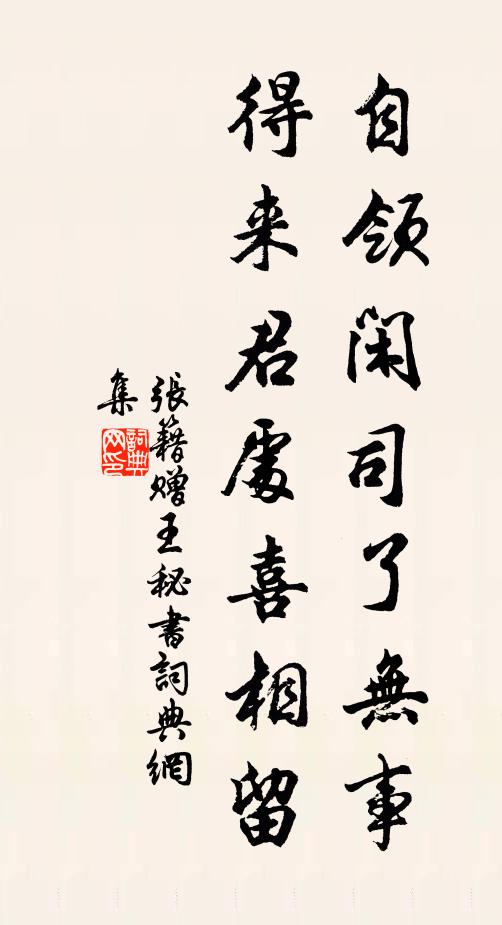 自領閑司了無事
得来君處喜相留
張籍贈王秘書詞典網
集
詞典
网印